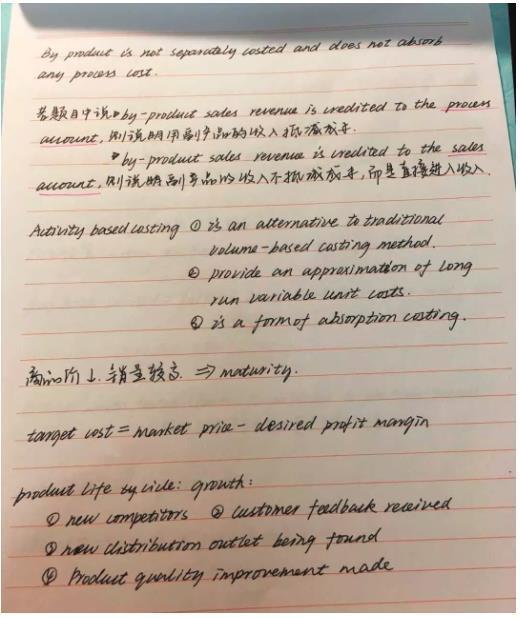 By product is not separately costed and does not absorb
any process cost.
若题目中说 • by-product sales revenue is credited to the process
account, 则说明用副产品的收入抵减成本.
• by-product sales revenue is credited to the sales
account, 则说明副产品的收入不抵减成本, 而是直接进入收入.
Activity based costing ① is an alternative to traditional
volume-based costing method.
② provide an approximation of long
run variable unit costs.
③ is a form of absorption costing.
商品价↓. 销量较高. ⇒ maturity.
target cost = market price - desired profit margin
product life sycicle: growth:
① new competitors ② customer feedback received
③ new distribution outlet being found
④ Product quality improvement made